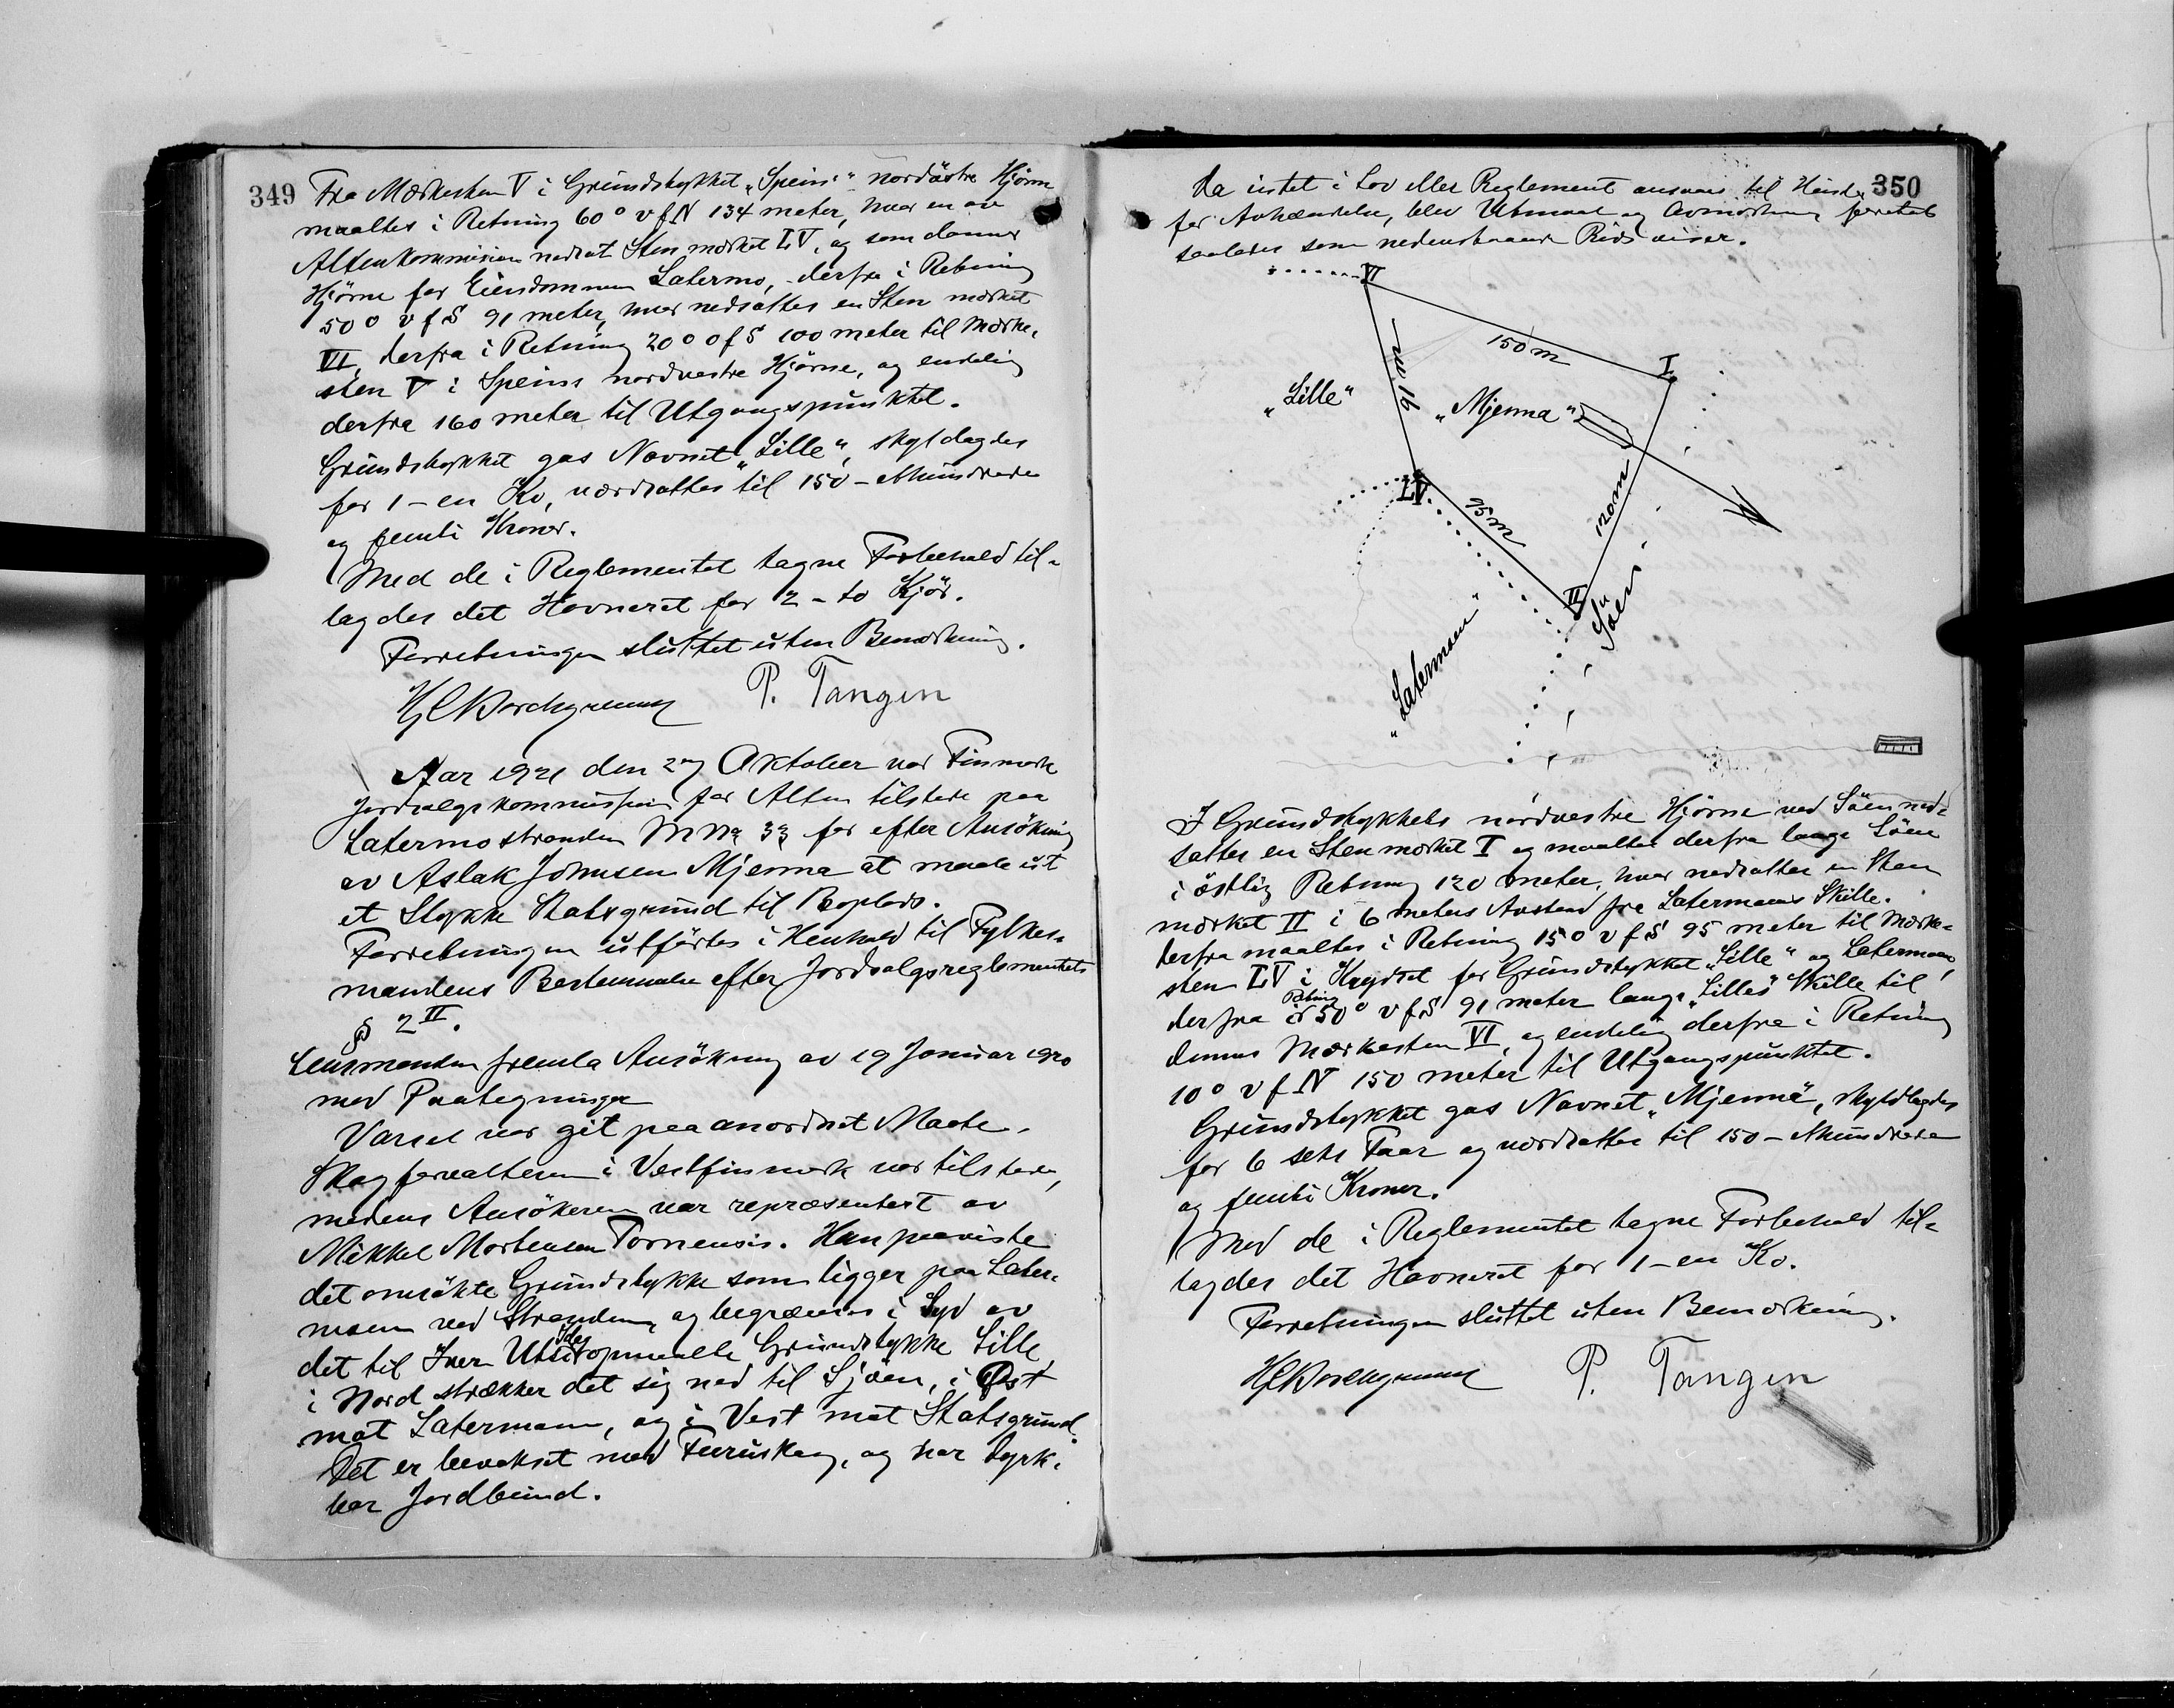 349
Fra Mærkesten V i Grundstykket „Speins" nordöstre Hjörne
maaltes i Retning 60° v f N 134 meter, hvor en av
Altenkommisionen nedsat Sten mærket LV, og som danner
Hjörne for Eiendommen Latermo, derfra i Retning
50° v f S 91 meter, hvor nedsattes en Sten mærket
VI, derfra i Retning 20° o f S 100 meter til Mærke-
sten V i Speins nordvestre Hjörne, og endelig
derfra 160 meter til Utgangspunktet.
Grundstykket gas Navnet „Lille", skyldlagdes
for 1 - en Ko, værdsattes til 150 - ethundrede
og femti Kroner.
Med de i Reglementet tagne Forbehold til-
lagdes det Havneret for 2 - to Kjör.
Forretningen sluttet uten Bemærkning.
P. Tangen
Aar 1921 den 27 Oktober var Finmark
Jordsalgskommission for Alten tilstede paa
Latermostranden M No 33 for efter Ansökning
av Aslak Johnsen Mjenna at maale ut
et Stykke Statsgrund til Boplads.
Forretningen utförtes i Henhold til Fylkes-
mandens Bestemmelse efter Jordsalgsreglementets
§ 2 II.
Lensmanden fremla Ansökning av 19 Januar 1920
med Paategninger
Varsel var git paa anordnet Maate.
Skogforvalteren i Vestfinmark var tilstede,
medens Ansökeren var repræsentert av
Mikkel Mortensen Tornensis. Han paaviste
det omsökte Grundstykke som ligger paa Later-
moen ved Stranden, og begrænses i Syd av
det til Iver Utsi idag opmaalte Grundstykke Lille
i Nord strækker det sig ned til Sjöen, i Öst
mot Latermoen, og i Vest mot Statsgrund.
Det er bevokset med Furuskog, og har dyrk-
bar Jordbund.
350
Da intet i Lov eller Reglement ansaaes til Hinder
for Avhændelse, blev Utmaal og Avmerkning foretat
saaledes som nedenstaaende Rids viser.
VI
150 m
I
91 m
„Lille"
„Mjenna"
N
LV.
95 m
120 m
II
Söen
„Latermoen"
I Grundstykkets nordvestre Hjörne ved Söen ned-
sattes en Sten mærket I og maaltes derfra langs Söen
i östlig Retning 120 meter, hvor nedsattes en Sten
mærket II i 6 meters Avstand fra Latermoens Skille.
derfra maaltes i Retning 15° v f S 95 meter til Mærke-
sten LV i Krydset for Grundstykket „Lille" og Latermoen,
derfra i Retning 50° v f S 91 meter langs „Lilles" Skille til
dennes Mærkesten VI, og endelig derfra i Retning
10° v f N 150 meter til Utgangspunktet.
Grundstykket gas Navnet „Mjenna", skyldlagdes
for 6 seks Faar og værdsattes til 150 - ethundrede
og femti Kroner.
Med de i Reglementet tagne Forbehold til-
lagdes det Havneret for 1 - en Ko.
Forretningen sluttet uten Bemærkning.
P. Tangen